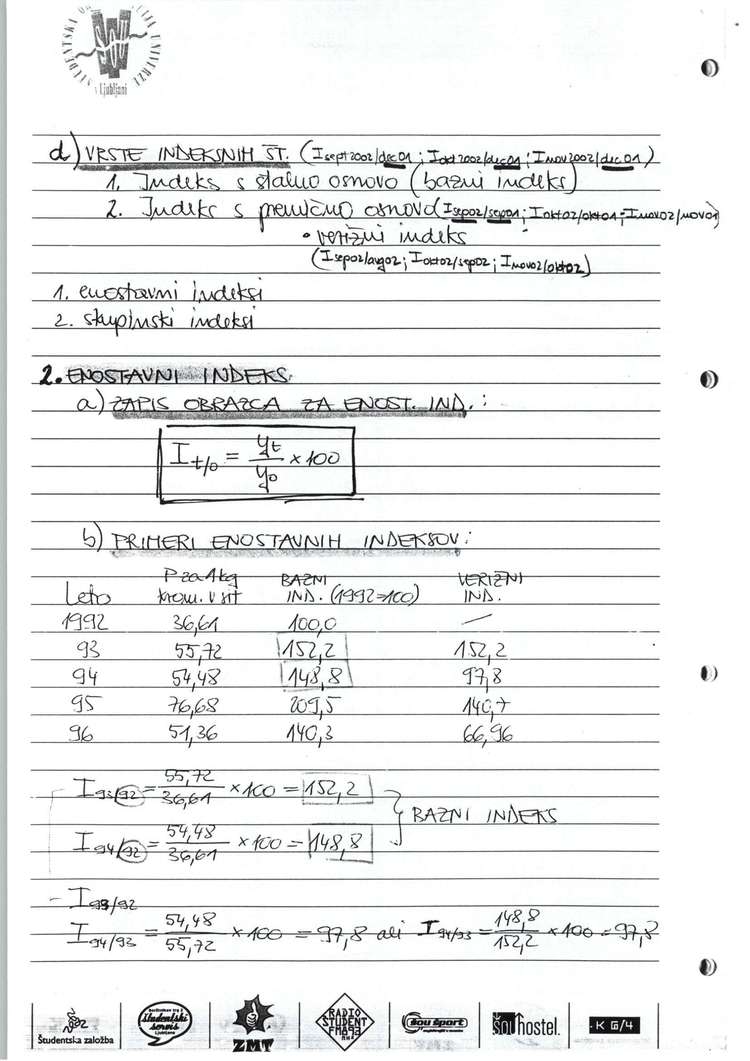 ŠOU
v Ljubljani
d) VRSTE INDEKSNIH ŠT. (I sept2002/dec01; I okt2002/dec01; I nov2002/dec01)
1. Indeks s stalno osnovo (bazni indeks)
2. Indeks s premično osnovo (I sep02/sep01; I okt02/okt01; I nov02/nov01)
• verižni indeks
(I sep02/avg02; I okt02/sep02; I nov02/okt02)
1. enostavni indeksi
2. skupinski indeksi
2. ENOSTAVNI INDEKS
a) ZAPIS OBRAZCA ZA ENOST. IND.:
I t/0 = yt/y0 × 100
b) PRIMERI ENOSTAVNIH INDEKSOV:
P za 1kg BAZNI VERIŽNI
Leto krom. v sit IND. (1992=100) IND.
1992 36,61 100,0 —
93 55,72 152,2 152,2
94 54,48 148,8 97,8
95 76,68 209,5 140,7
96 51,36 140,3 66,96
I 93/92 = 55,72/36,61 × 100 = 152,2
BAZNI INDEKS
I 94/92 = 54,48/36,61 × 100 = 148,8
- I 93/92
I 94/93 = 54,48/55,72 × 100 = 97,8 ali I 94/93 = 148,8/152,2 × 100 = 97,8
Študentska založba
študentski servis
ZMT
RADIO ŠTUDENT
šou šport
šouhostel.
K G/4